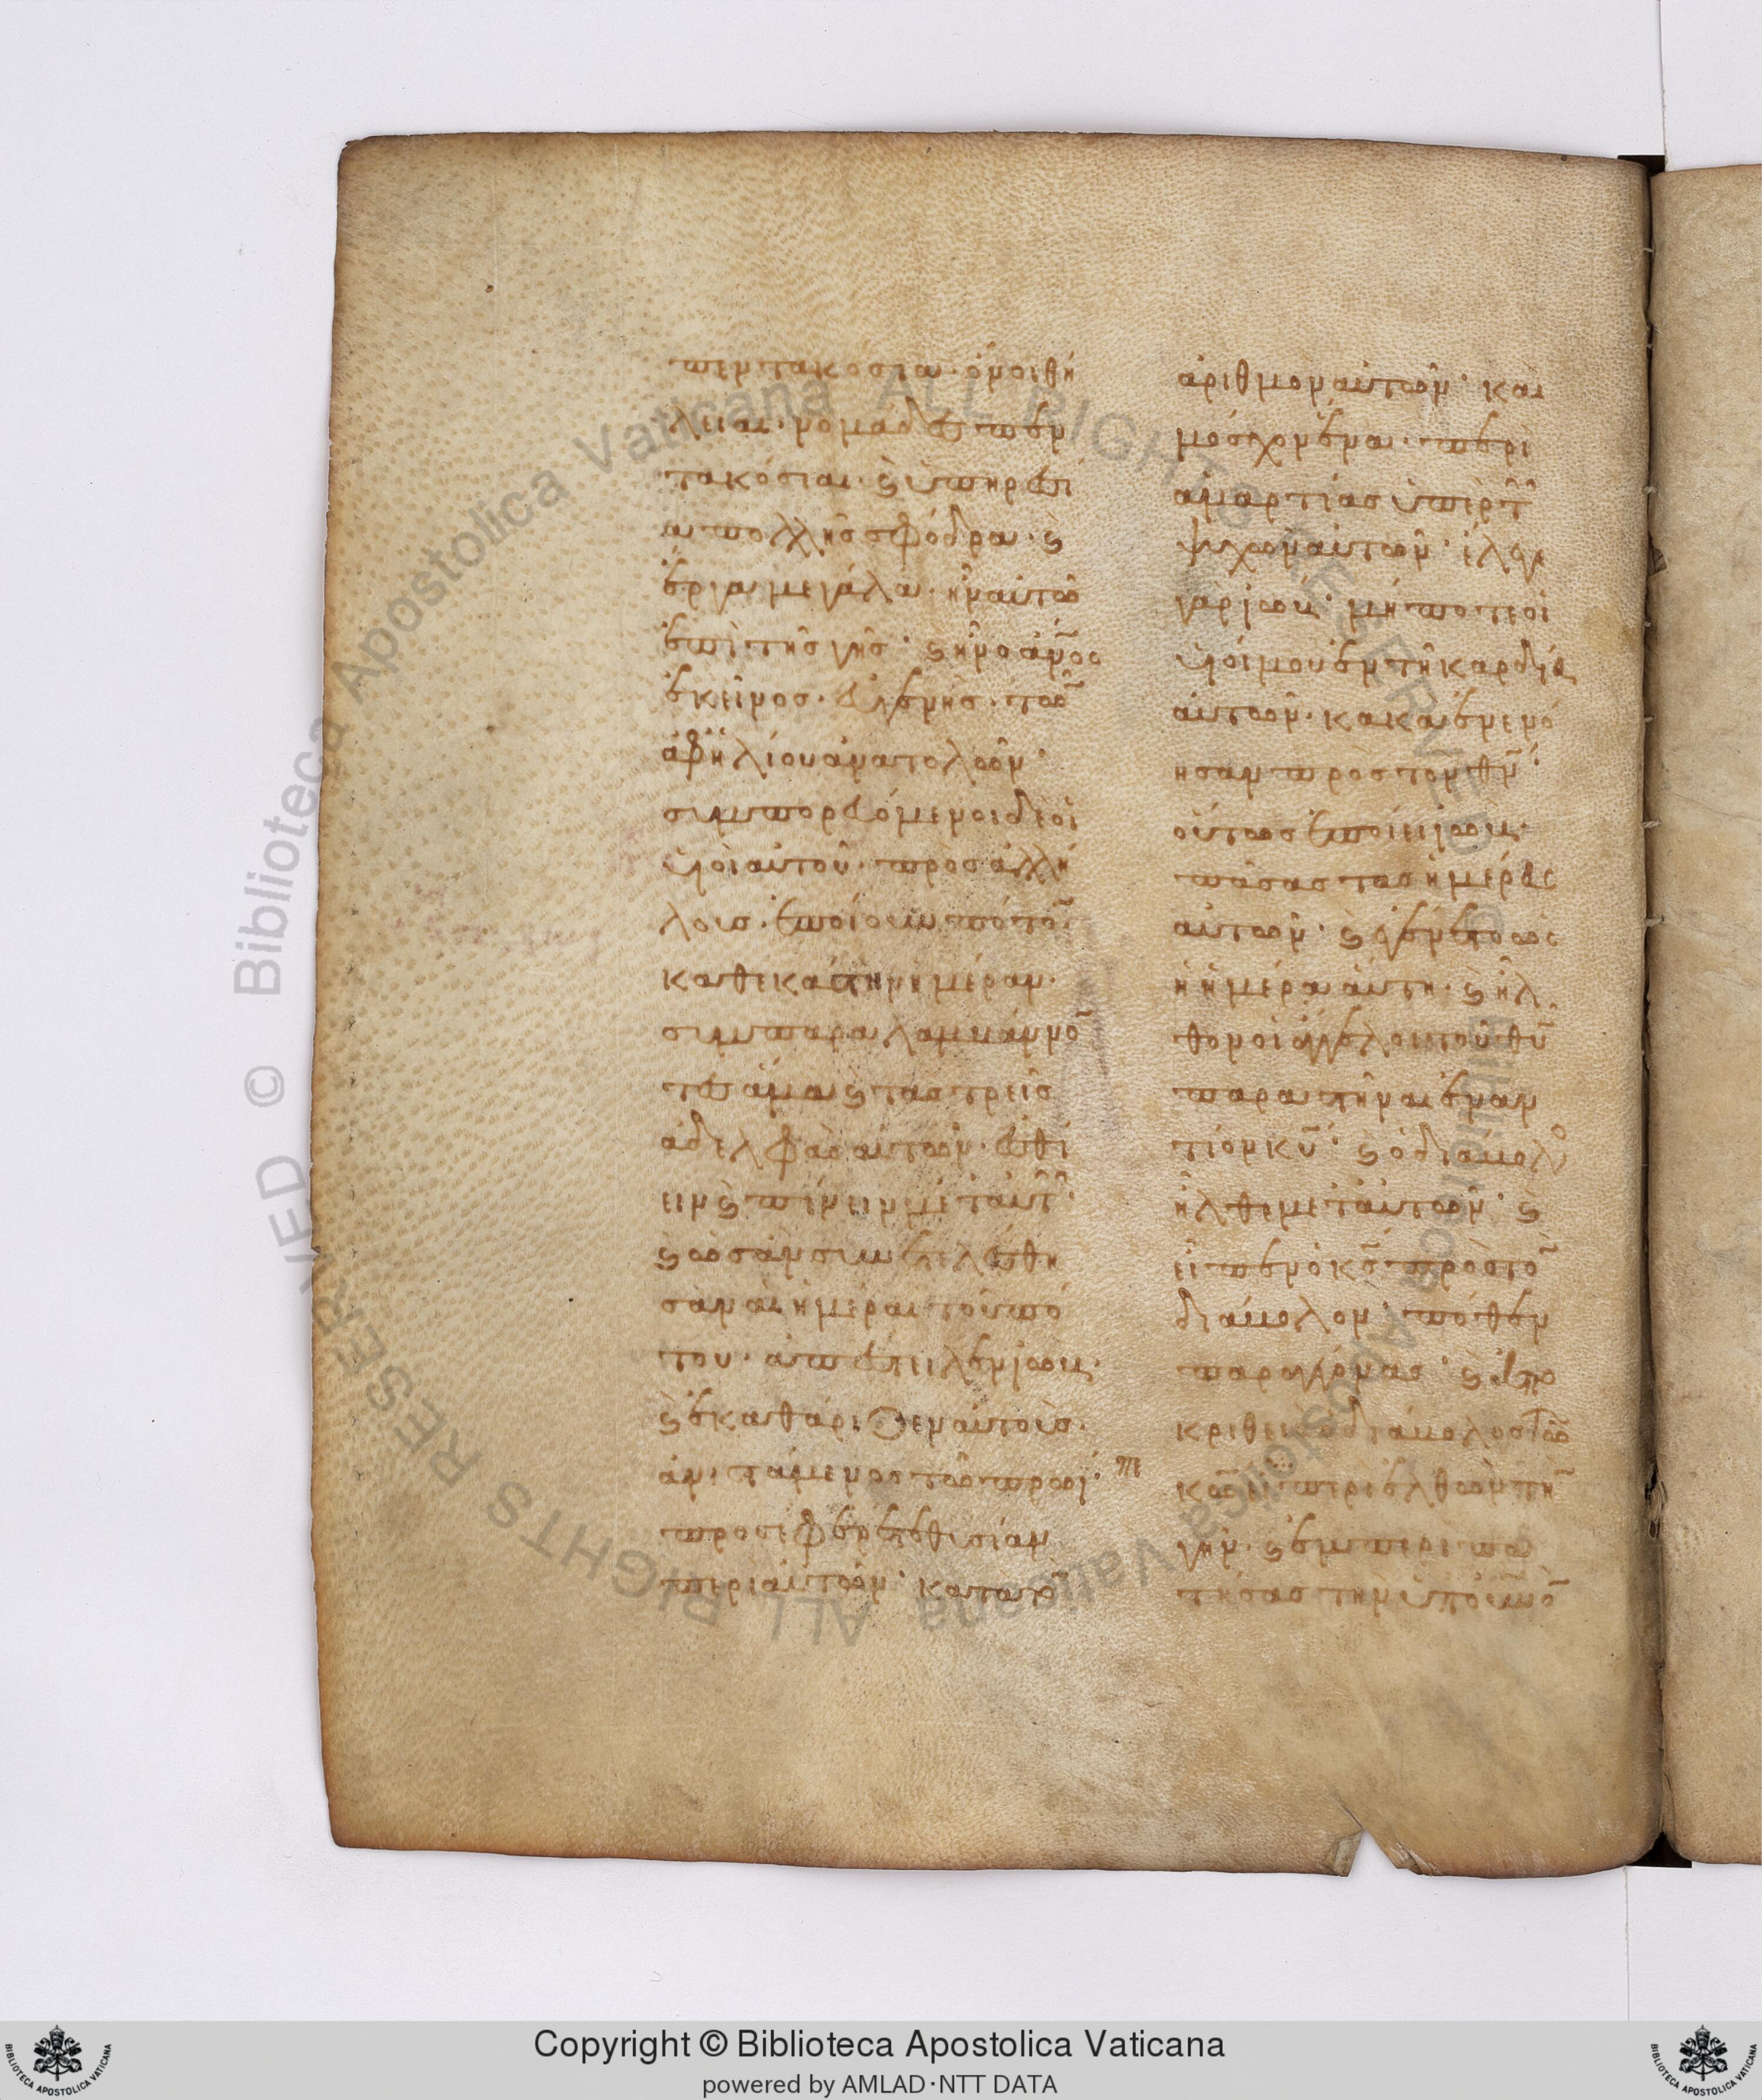 πεντακόσια· ὄνοι θή
λειαι· νομάδες πεν
τακόσιαι· καὶ ὑπηρεσί
α πολλὴ σφόδρα· καὶ
ἔργα μεγάλα· ἦν αὐτῶ
ἐπὶ τῆς γῆς· καὶ ἦν ὁ ἄνος
ἐκεῖνος· εὐγενὴς· τῶν
ἀφ' ἡλίου ἀνατολῶν·
συμπορευόμενοι δὲ οἱ
υἱοὶ αὐτοῦ· πρὸς ἀλλή
λους· ἐποίουν πότον
καθ' εκάστην ημέραν·
συμπαραλαμβάνον
τες ἅμα καὶ τὰς τρεῖς
ἀδελφὰς αὐτῶν· ἐσθί
ειν καὶ πίνειν μετ' αὐτῶν·
καὶ ὡς ἂν συνετελέσθη
σαν αἱ ἡμέραι τοῦ πό
του· ἀπέστειλεν ἰώβ·
καὶ ἐκαθάριζεν αὐτούς·
ἀνιστάμενος τὸ πρωΐ·
προσέφερέ τε θυσίαν
περὶ αὐτῶν· κατὰ τὸν
ἀριθμὸν αὐτῶν· καὶ
μόσχον ἕνα· περὶ
ἁμαρτίας ὑπὲρ τῶν
ψυχῶν αὐτῶν· ἔλεγε
γὰρ ἰώβ· μή ποτε οἱ
υἱοί μου ἐν τῇ καρδίᾳ
αὐτῶν· κακὰ ἐνενό
ησαν πρὸς τὸν θν·
οὕτως ἐποίει ἰώβ·
πάσας τὰς ἡμέρας
αὐτῶν· καὶ ἐγένετο ὡς
ἡ ἡμέρα αὕτη· καὶ ἦλ
θον οἱ ἄγγελοι τοῦ θυ
παραστῆναι ἐναν
τίον κυ· καὶ ὁ διάβολος
ἦλθε μετ' αὐτῶν· καὶ
εἶπεν ὁ κς πρὸς τὸν
διάβολον· πόθεν
παραγέγονας· καὶ ἀπο
κριθεὶς ὁ διάβολος τῶ
κω εἶπε· περιελθὼν τὴν
γῆν· καὶ ἐμπεριπα
τήσας τὴν ὑπ' οὐνον